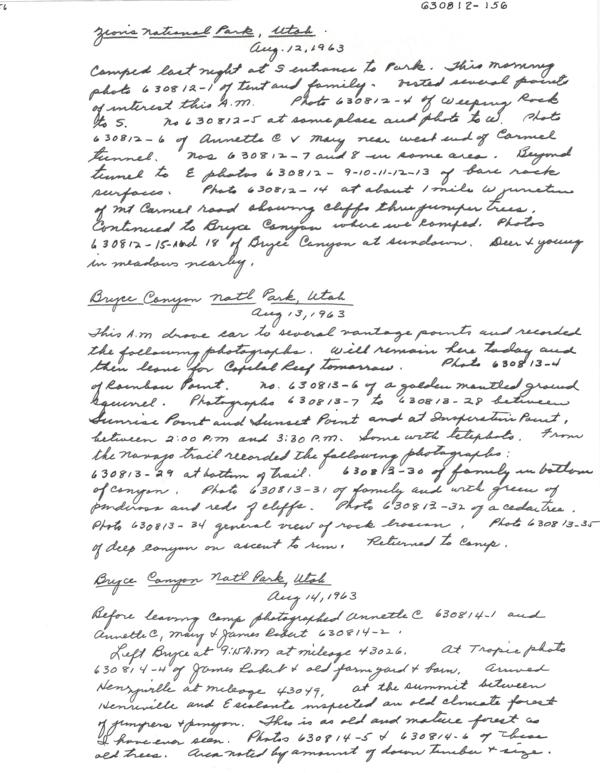 56
630812-156
Zions National Park, Utah.
Aug. 12, 1963
Camped last night at S entrance to Park. This morning
photo 630812-1 of tent and family. Visted several points
of interest this A.M. Photo 630812-4 of Weeping Rock
to S. No 630812-5 at same place and photo to W. Photo
630812-6 of Annette C & Mary near west end of Carmel
tunnel. Nos 630812-7 and 8 in same area. Beyond
tunnel to E photos 630812-9-10-11-12-13 of bare rock
surfaces. Photo 630812-14 at about 1 mile W junction
of Mt Carmel road showing cliffs thru juniper trees.
Continued to Bryce Canyon where we camped. Photos
630812-15-And 18 of Bryce Canyon at sundown. Deer & young
in meadows nearby.
Bryce Canyon Natl Park, Utah
Aug 13, 1963
This A.M drove car to several vantage points and recorded
the following photographs. Will remain here today and
then leave for Capital Reef tomorrow. Photo 630813-4
of Rainbow Point. No. 630813-6 of a golden mantled ground
squirrel. Photographs 630813-7 to 630813-28 between
Sunrise Point and Sunset Point and at Inspiration Point,
between 2:00 P.M and 3:30 P.M. Some with telephoto. From
the Navajo trail recorded the following photographs:
630813-29 at bottom of trail. 630813-30 of family in bottom
of Canyon. Photo 630813-31 of family and with green of
ponderosa and reds of cliffs. Photo 630813-32 of a cedar tree.
Photo 630813-34 general view of rock erosion. Photo 630813-35
of deep canyon on ascent to rim. Returned to Camp.
Bryce Canyon Natl Park, Utah
Aug 14, 1963
Before leaving Camp photographed Annette C 630814-1 and
Annette C, Mary & James Robert 630814-2.
Left Bryce at 9:15 A.M at mileage 43026. At Tropic photo
630814-4 of James Robert & old farm yard & barn. Arrived
Henryville at mileage 43049. At the summit between
Henrieville and Escalante inspected an old climate forest
of junipers & pinyon. This is as old and mature forest as
I have ever seen. Photos 630814-5 & 630814-6 of these
old trees. Area noted by amount of down timber & size.